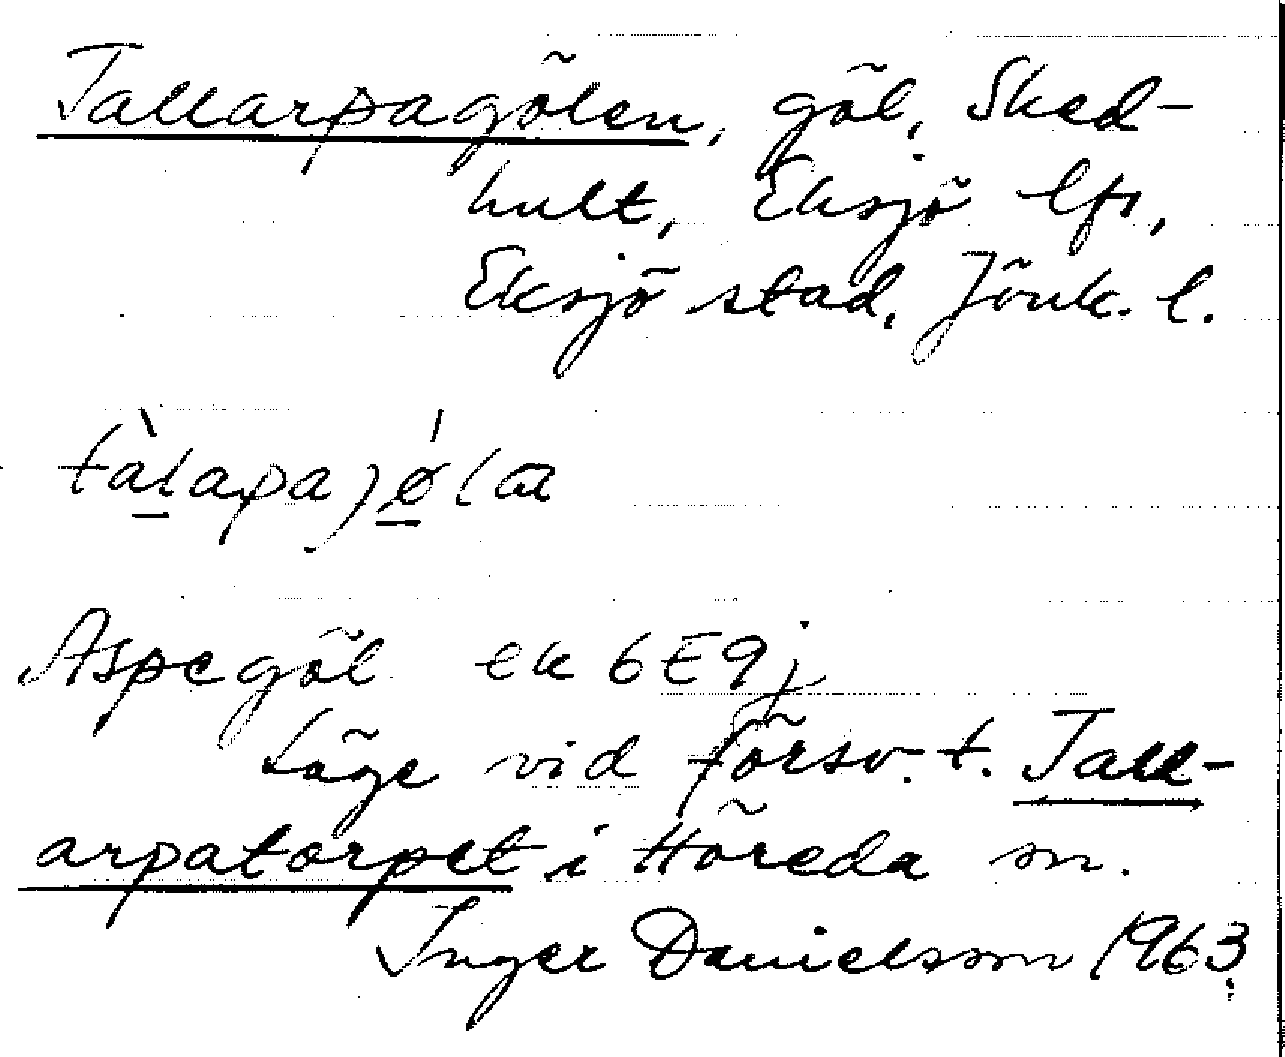 Tallarpagölen, göl, Sked-
hult, Eksjö lfs,
Eksjö stad, Jönk. l.
Aspegöl ek 6E9j
Läge vid försv. t. Tall-
arpatorpet i Höreda sn.
Inger Danielsson 1963